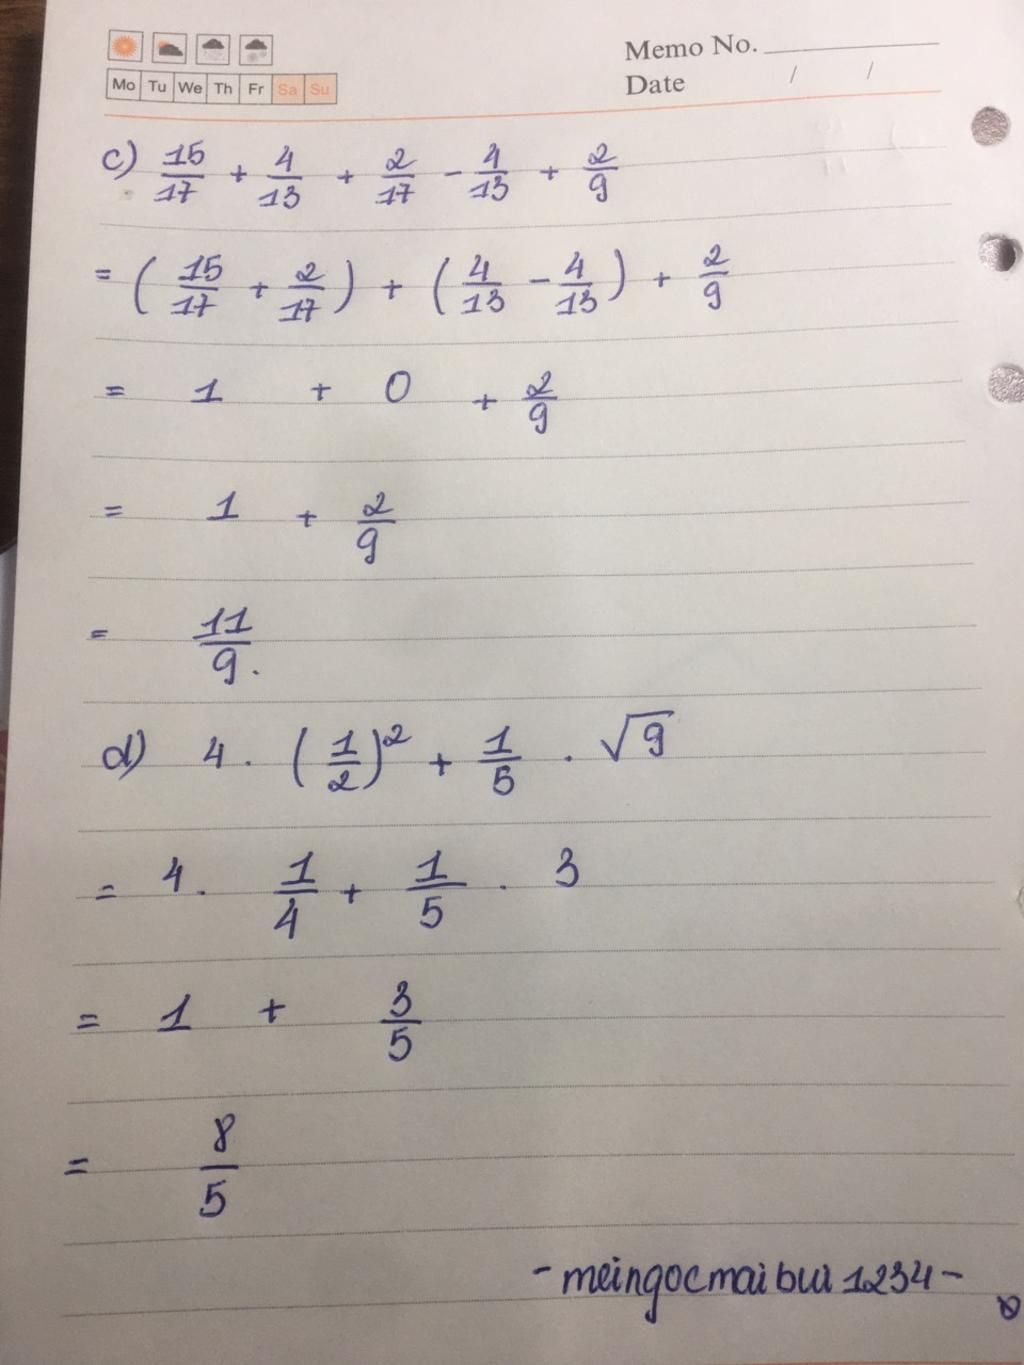 Mo Tu We Th Fr Sa Su
Memo No.
Date / /
c) 15/17 + 4/13 + 2/17 - 4/13 + 2/9
= (15/17 + 2/17) + (4/13 - 4/13) + 2/9
= 1 + 0 + 2/9
= 1 + 2/9
= 11/9.
d) 4 . (1/2)² + 1/5 . √9
= 4 . 1/4 + 1/5 . 3
= 1 + 3/5
= 8/5
- meingocmaibui1234 -